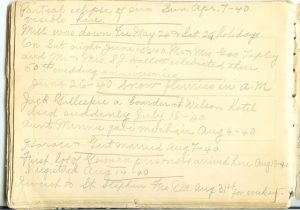 Partial eclipse of sun Sun. Apr. 7-40
visible here.
Mill was down Fri May 24 & Sat. 25 holidays
On Sat. night June 15-40 Mr & Mrs Geo Tapley
and Mr & Mrs S J Hallett celebrated their
50th wedding anniversaries
June 26-40 Snow flurries in A.M
Jack Gillespie a boarder at Wilson hotel
died suddenly July 15-40
Aunt Minnie gave me chair Aug 6-40
Horace & Gert married Aug 7-40
First lot of German prisoners arrived here Aug 13-40
Aug 14-40
Went to St Stephen Fri P.M. Aug 31st for weekend